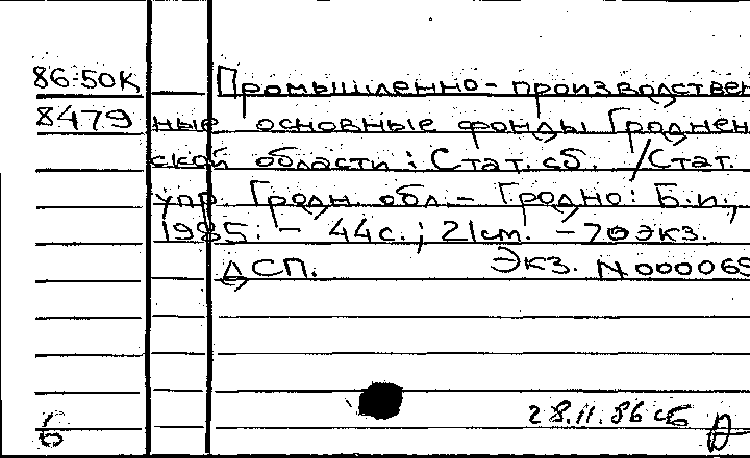 86-50К Промышленно-производствен
8479 ные основные фонды Гроднен
ской области: Стат. сб. /Стат.
упр. Гродн. обл. - Гродно: Б.и.,
1985. - 44с.; 21см. - 70экз.
ДСП. Экз. N 000069
28.11.86 сб
б